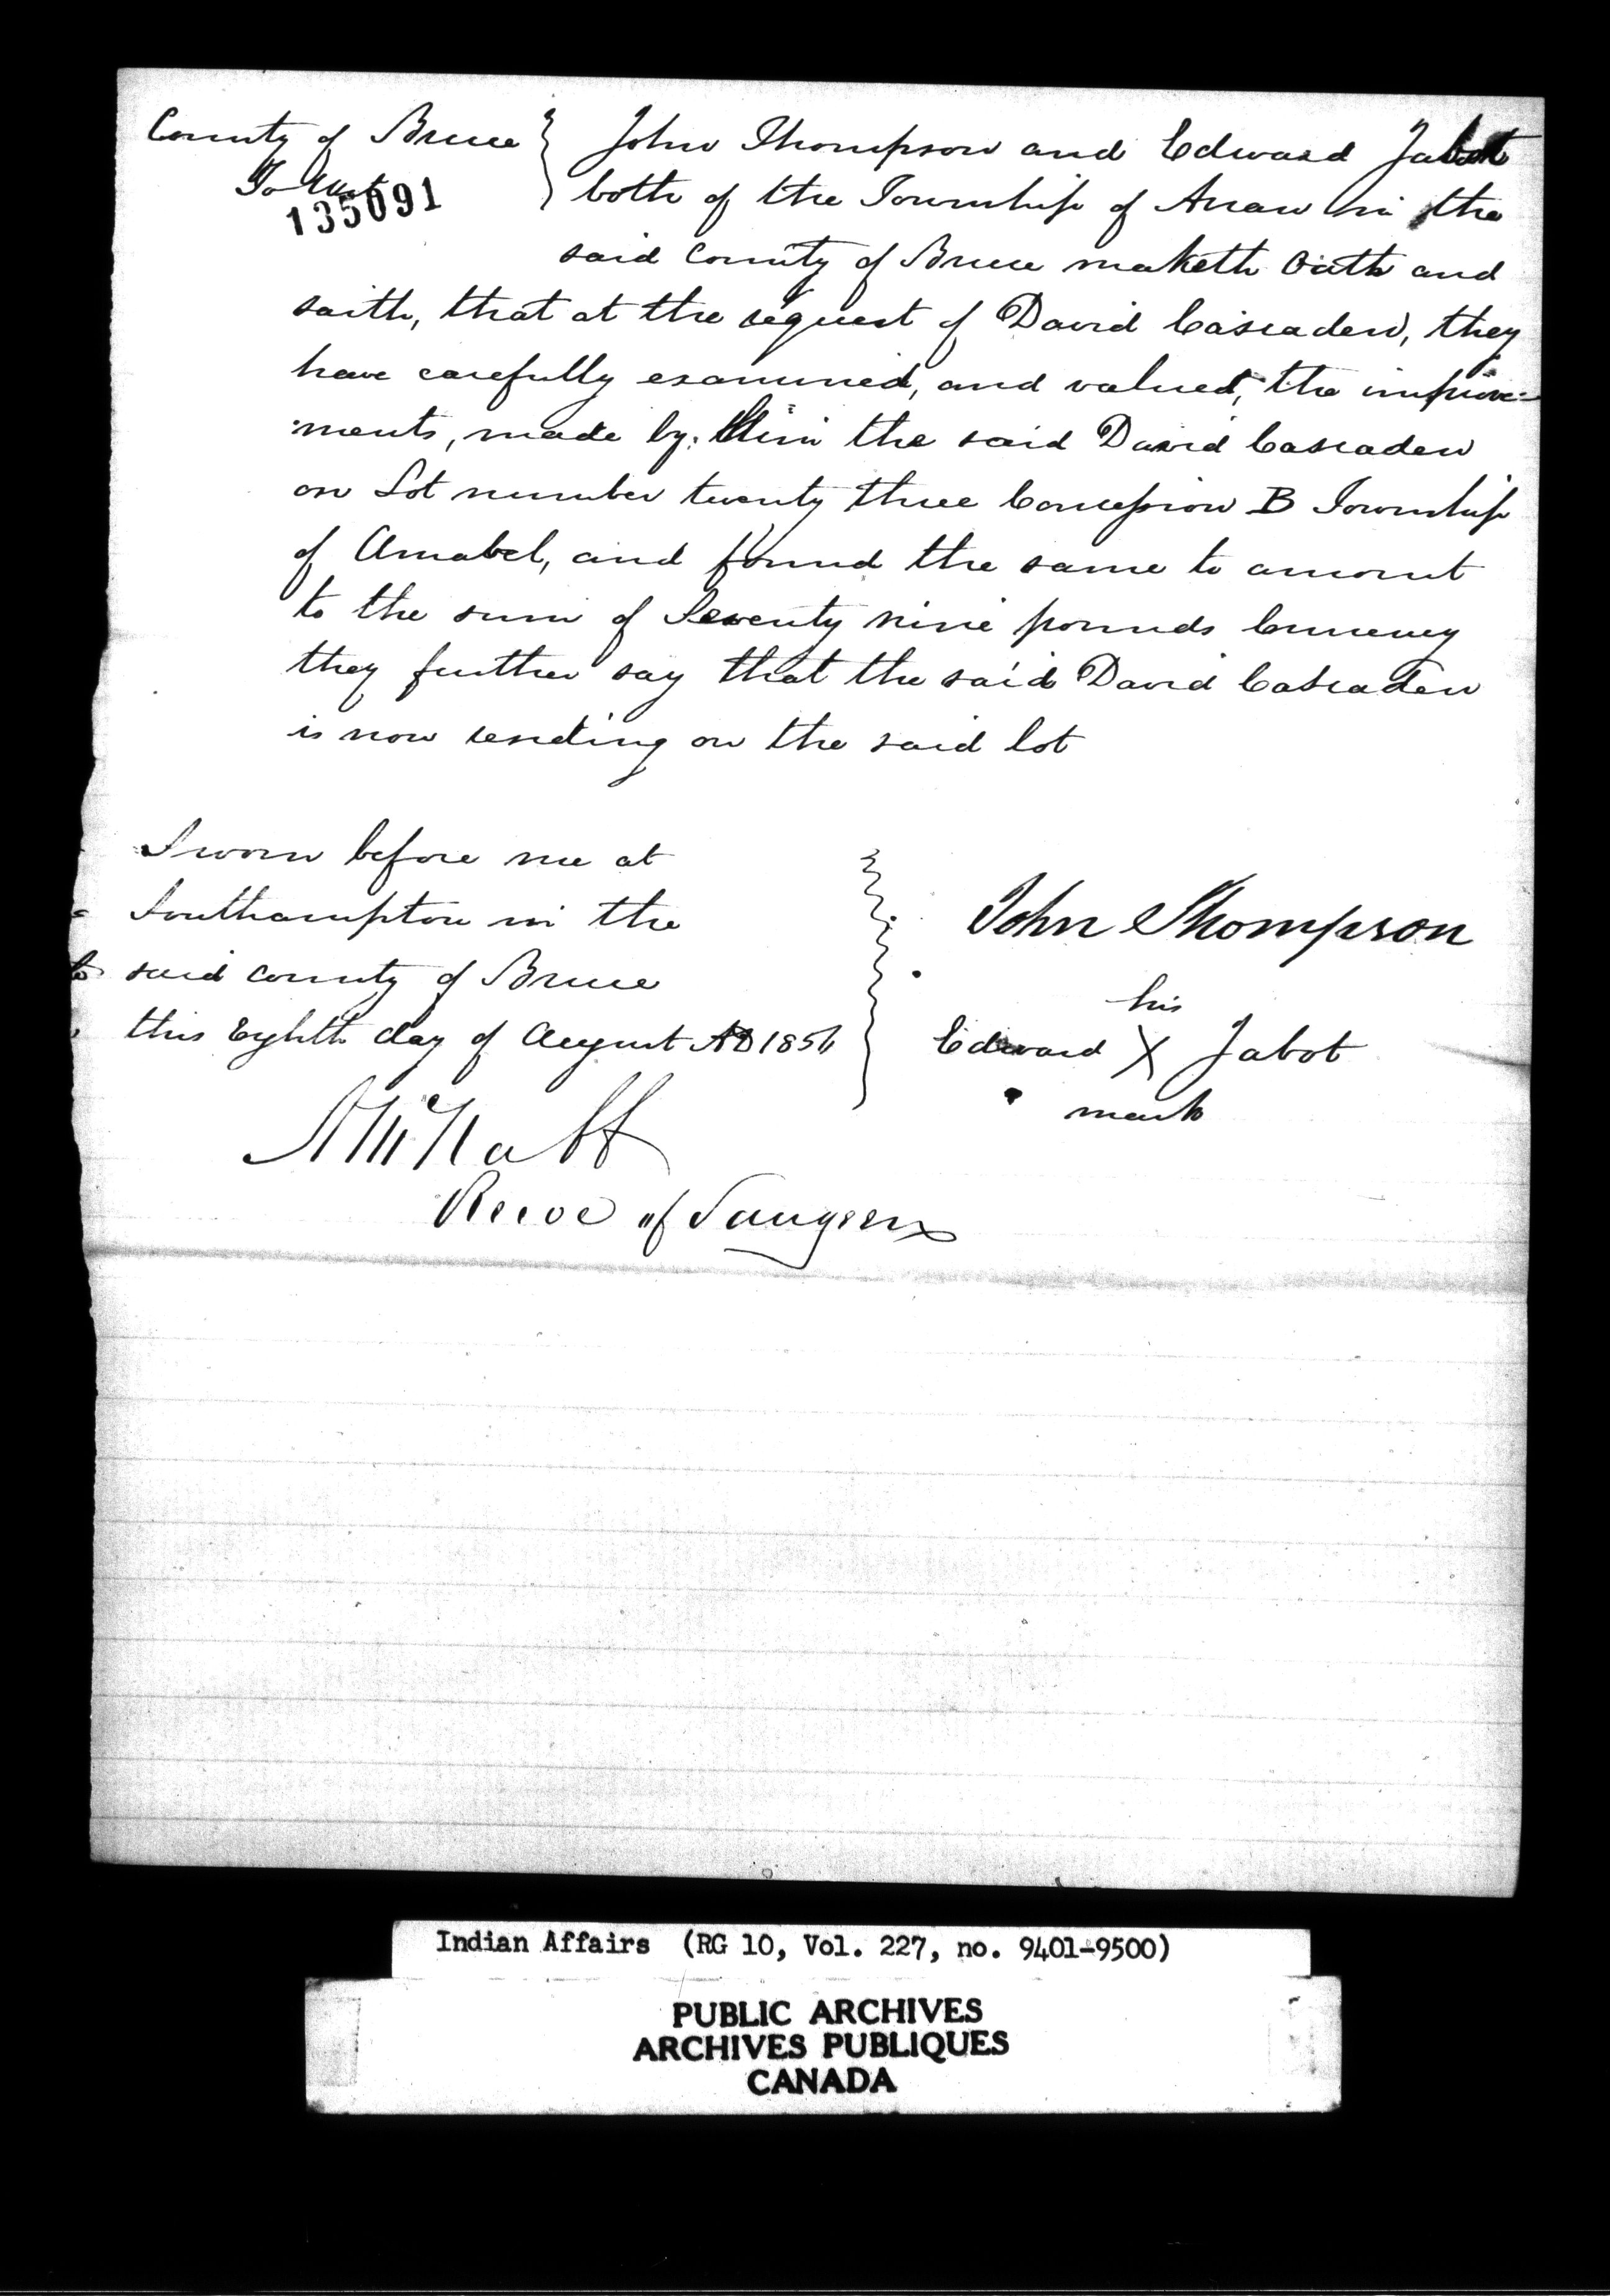 County of Bruce
To Wit
135091
John Thompson and Edward Jabot
both of the Township of Arran in the
said County of Bruce maketh Oath and
saith, that at the request of David Cascaden, they
have carefully examined, and valued, the improve=
ments, made by Him the said David Cascaden
on Lot number twenty three Concession B Township
of Amabel, and found the same to amount
to the sum of Seventy nine pounds Currency
they further say that the said David Cascaden
is now residing on the said lot
Sworn before me at
Southampton in the
said County of Bruce
this Eighth day of August AD 1856
John Thompson
his
Edward X Jabot
mark
A McNabb
Reeve of Saugeen
Indian Affairs (RG 10, Vol. 227, no. 9401-9500)
PUBLIC ARCHIVES
ARCHIVES PUBLIQUES
CANADA